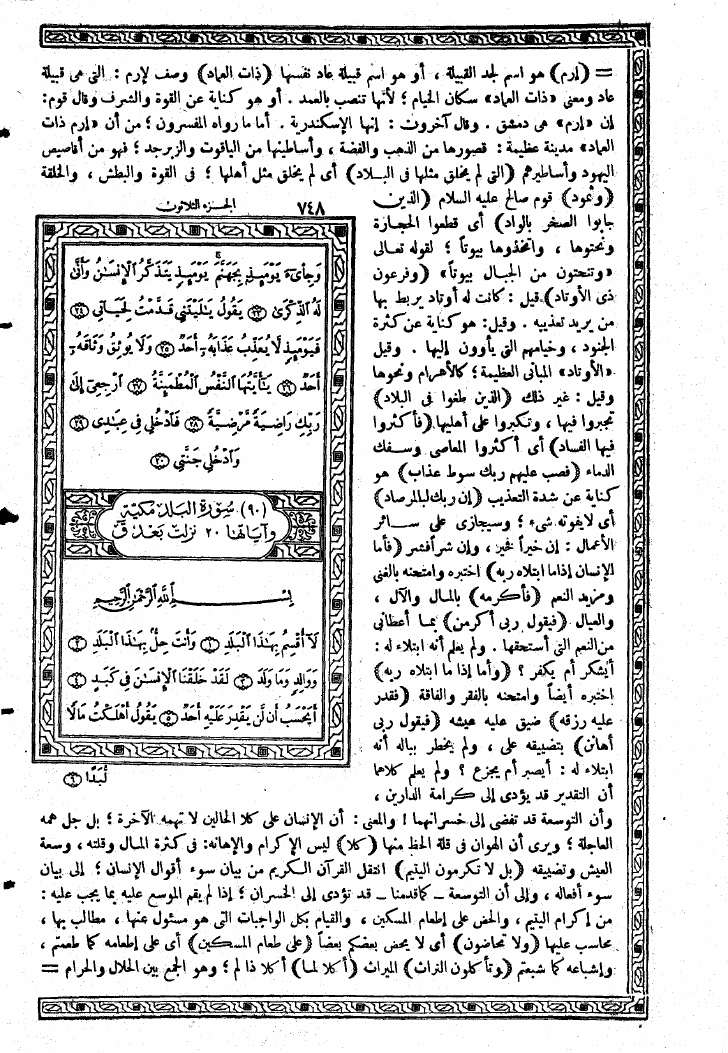 = (إرم) هو اسم لجد القبيلة ، أو هو اسم قبيلة عاد نفسها (ذات العماد) وصف لإرم : التى هى قبيلة
عاد ومعنى «ذات العماد» سكان الخيام ؛ لأنها تنصب بالعمد . أو هو كناية عن القوة والشرف وقال قوم:
إن «إرم» هى دمشق . وقال آخرون : إنها الإسكندرية . أما ما رواه المفسرون ؛ من أن «إرم ذات
العماد» مدينة عظيمة : قصورها من الذهب والفضة ، وأساطينها من الياقوت والزبرجد ؛ فهو من أقاصيص
اليهود وأساطيرهم (التى لم يخلق مثلها فى البلاد) أى لم يخلق مثل أهلها ؛ فى القوة والبطش ، والخلقة
(وثمود) قوم صالح عليه السلام (الذين
جابوا الصخر بالواد) أى قطعوا الحجارة
ونحتوها ، واتخذوها بيوتاً ؛ لقوله تعالى
«وتنحتون من الجبال بيوتاً» (وفرعون
ذى الأوتاد) قيل : كانت له أوتاد يربط بها
من يريد تعذيبه . وقيل : هو كناية عن كثرة
الجنود ، وخيامهم التى يأوون إليها . وقيل
«الأوتاد» المبانى العظيمة ؛ كالأهرام ونحوها
وقيل : غير ذلك (الذين طغوا فى البلاد)
تجبروا فيها ، وتكبروا على أهليها (فأكثروا
فيها الفساد) أى أكثروا المعاصى وسفك
الدماء (فصب عليهم ربك سوط عذاب) هو
كناية عن شدة التعذيب (إن ربك لبالمرصاد)
أى لا يفوته شىء ؛ وسيجازى على سائر
الأعمال : إن خيراً فخير ، وإن شراً فشر (فأما
الإنسان إذا ما ابتلاه ربه) اختبره وامتحنه بالغنى
ومزيد النعم (فأكرمه) بالمال والآل ،
والعيال (فيقول ربى أكرمن) بما أعطانى
من النعم التى أستحقها . ولم يعلم أنه ابتلاء له :
أيشكر أم يكفر ؟ (وأما إذا ما ابتلاه ربه)
اختبره أيضاً وامتحنه بالفقر والفاقة (فقدر
عليه رزقه) ضيق عليه عيشه (فيقول ربى
أهانن) بتضييقه على ، ولم يخطر بباله أنه
ابتلاء له : أيصبر أم يجزع ؟ ولم يعلم كلاهما
أن التقدير قد يؤدى إلى كرامة الدارين ،
وأن التوسعة قد تفضى إلى خسرانهما ! والمعنى : أن الإنسان على كلا الحالين لا تهمه الآخرة ؛ بل جل همه
العاجلة ؛ ويرى أن الهوان فى قلة الحظ منها (كلا) ليس الإكرام والإهانة : فى كثرة المال وقلته ، وسعة
العيش وتضييقه (بل لا تكرمون اليتيم) انتقل القرآن الكريم من بيان سوء أقوال الإنسان ؛ إلى بيان
سوء أفعاله ، وإلى أن التوسعة - كما قدمنا - قد تؤدى إلى الخسران ؛ إذا لم يقم الموسع عليه بما يجب عليه :
من إكرام اليتيم ، والحض على إطعام المسكين ، والقيام بكل الواجبات التى هو مسئول عنها ، مطالب بها ،
محاسب عليها (ولا تحاضون) أى لا يحض بعضكم بعضاً (على طعام المسكين) أى على إطعامه كما طعمتم ،
وإشباعه كما شبعتم (وتأكلون التراث) الميراث (أكلا لما) أكلا ذا لم ؛ وهو الجمع بين الحلال والحرام =
٧٤٨ الجزء الثلاثون
وَجِاْىٓءَ يَوْمَئِذٍۭ بِجَهَنَّمَ يَوْمَئِذٍ يَتَذَكَّرُ ٱلْإِنسَـٰنُ وَأَنَّىٰ
لَهُ ٱلذِّكْرَىٰ ٢٣ يَقُولُ يَـٰلَيْتَنِى قَدَّمْتُ لِحَيَاتِى ٢٤
فَيَوْمَئِذٍ لَّا يُعَذِّبُ عَذَابَهُۥٓ أَحَدٌ ٢٥ وَلَا يُوثِقُ وَثَاقَهُۥٓ
أَحَدٌ ٢٦ يَـٰٓأَيَّتُهَا ٱلنَّفْسُ ٱلْمُطْمَئِنَّةُ ٢٧ ٱرْجِعِىٓ إِلَىٰ
رَبِّكِ رَاضِيَةً مَّرْضِيَّةً ٢٨ فَٱدْخُلِى فِى عِبَـٰدِى ٢٩
وَٱدْخُلِى جَنَّتِى ٣٠
(٩٠) سُورَةُ البَلَدِ مَكِيّة
وآياتها ٢٠ نزلت بَعْد ق
بِسْمِ ٱللَّهِ ٱلرَّحْمَٰنِ ٱلرَّحِيمِ
لَآ أُقْسِمُ بِهَـٰذَا ٱلْبَلَدِ ١ وَأَنتَ حِلٌّۢ بِهَـٰذَا ٱلْبَلَدِ ٢
وَوَالِدٍ وَمَا وَلَدَ ٣ لَقَدْ خَلَقْنَا ٱلْإِنسَـٰنَ فِى كَبَدٍ ٤
أَيَحْسَبُ أَن لَّن يَقْدِرَ عَلَيْهِ أَحَدٌ ٥ يَقُولُ أَهْلَكْتُ مَالًا
لُّبَدًا ٦